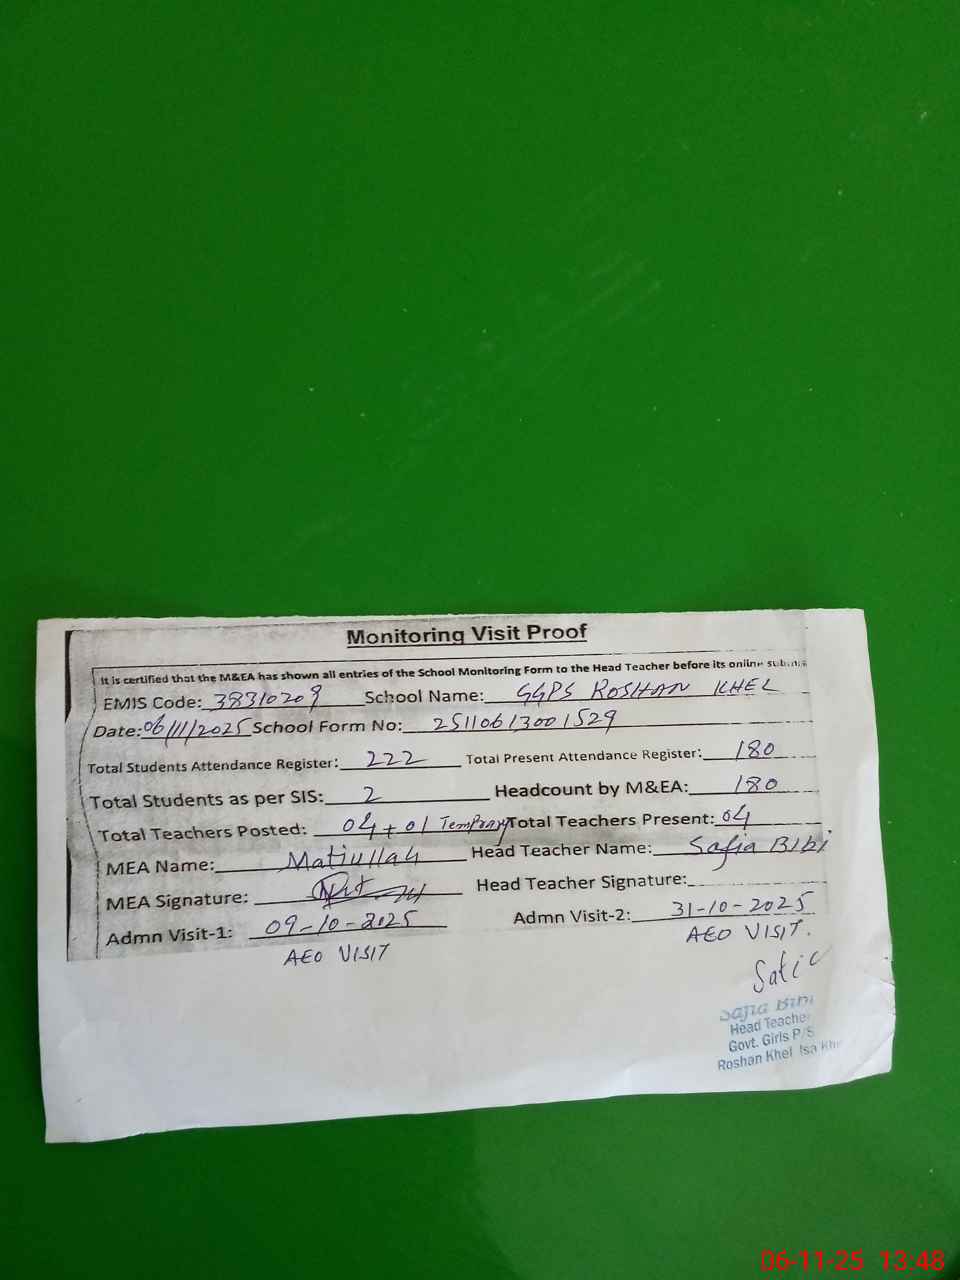 Monitoring Visit Proof
It is certified that the M&EA has shown all entries of the School Monitoring Form to the Head Teacher before its online
EMIS Code: 38310209 School Name: GGPS ROSHAN KHEL
Date: 06/11/2025 School Form No: 25110613001529
Total Students Attendance Register: 222 Total Present Attendance Register: 180
Total Students as per SIS: 2 Headcount by M&EA: 180
Total Teachers Posted: 04 + 01 Total Teachers Present: 04
MEA Name: Matiullah Head Teacher Name: Safia Bibi
MEA Signature: Head Teacher Signature:
Admn Visit-1: 09-10-2025 Admn Visit-2: 31-10-2025
AEO VISIT AEO VISIT.
Safia Bibi
Head Teacher
Govt. Girls P/S
Roshan Khel Isa Khe
06-11-25 13:48